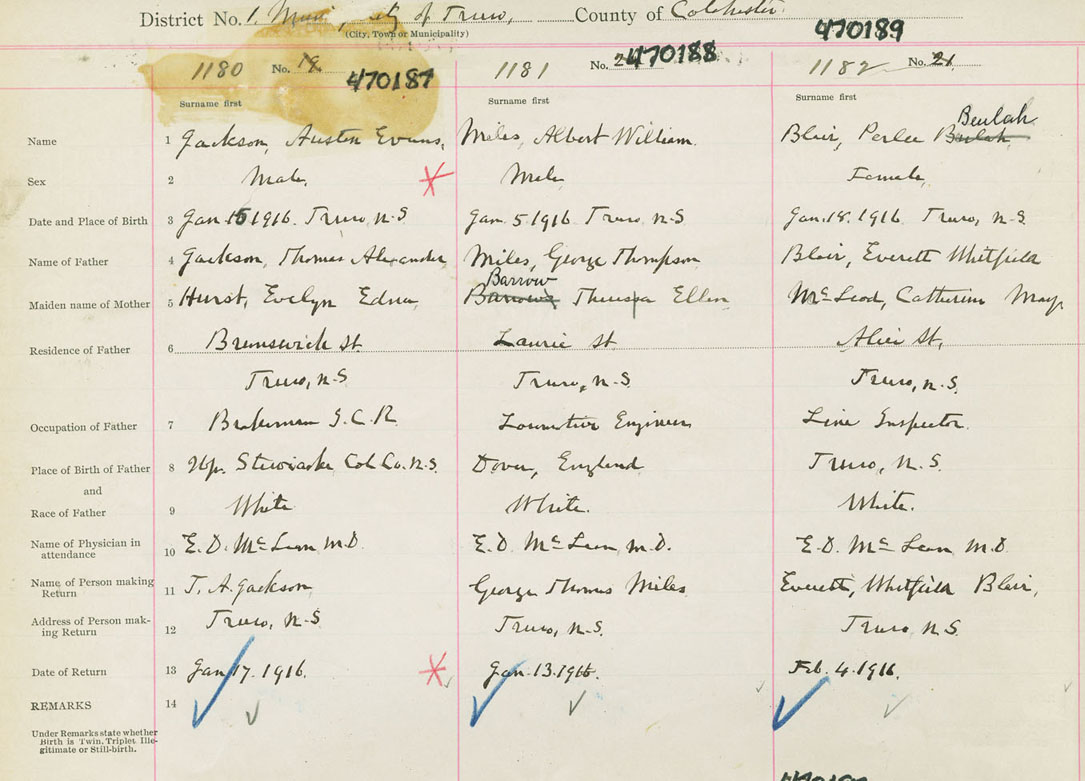 District No. 1, City of Truro, County of Colchester.
(City, Town or Municipality)
470189
1180 No. 19. 470187 1181 No. 2 470188 1182 No. 21.
Surname first Surname first Surname first
Beulah
Name 1 Jackson, Austen Evans, Miles, Albert William. Blair, Perlee Bulah,
Sex 2 Male. Male Female,
Date and Place of Birth 3 Jan 15 1916. Truro, N.S Jan. 5. 1916. Truro, N.S Jan. 18. 1916. Truro, N.S.
Name of Father 4 Jackson, Thomas Alexander Miles, George Thompson Blair, Everett Whitfield
Barrow
Maiden name of Mother 5 Hurst, Evelyn Edna, Barrows Theresa Ellen McLeod, Catherine May
Residence of Father 6 Brunswick St. Laurie St Alice St,
Truro, N.S. Truro, N.S. Truro, N.S.
Occupation of Father 7 Brakeman I.C.R. Locomotive Engineer Line Inspector.
Place of Birth of Father 8 Up. Stewiacke Col. Co. N.S. Dover, England Truro, N.S.
and
Race of Father 9 White White. White.
Name of Physician in
attendance 10 E. D. McLean M.D. E. D. McLean M.D. E. D. McLean M.D.
Name of Person making
Return 11 T. A. Jackson, George Thomas Miles. Everett, Whitfield Blair,
Address of Person mak-
ing Return 12 Truro, N.S. Truro, N.S. Truro, N.S.
Date of Return 13 Jan 17. 1916. Jan. 13. 1916. Feb. 4. 1916.
REMARKS 14
Under Remarks state whether
Birth is Twin, Triplet Ille-
gitimate or Still-birth.